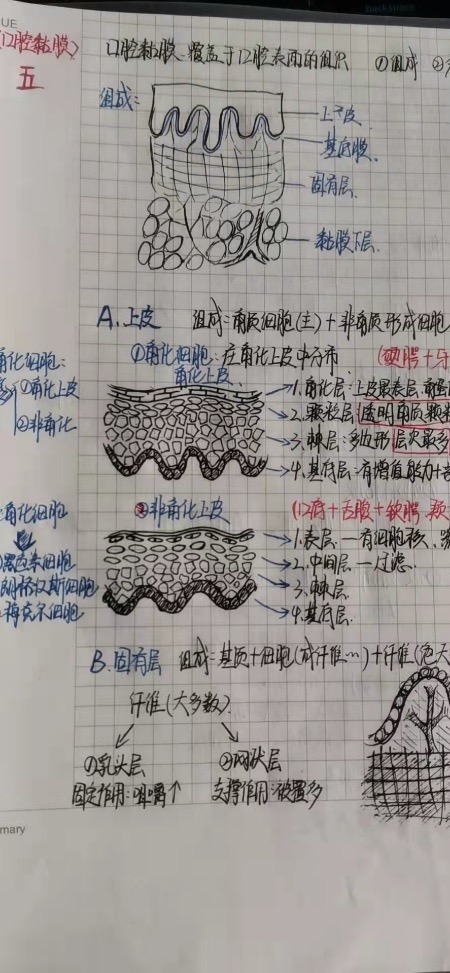 (口腔黏膜)
五
口腔黏膜:覆盖于口腔表面的组织 ①组成 ②
组成:
上皮
基底膜
固有层
黏膜下层
A.上皮 组成:角质细胞(主)+非角质形成细胞
角化细胞:
①角化细胞:在角化上皮中分布
(硬腭+牙
角化上皮
①角化上皮
②非角化
1.角化层:上皮最表层
2.颗粒层:透明角质颗粒
3.棘层:多边形 层次最多
4.基底层:有增值能力+
非角化上皮
(口底+舌腹+软腭
角化细胞
黑色素细胞
朗格汉斯细胞
梅克尔细胞
1.表层—有细胞核
2.中间层—过滤
3.棘层
4.基底层
B.固有层 组成:基质+细胞(成纤维…)+纤维
纤维(大多数)
①乳头层
②网状层
固定作用:咀嚼↑
支撑作用:被覆多
mary